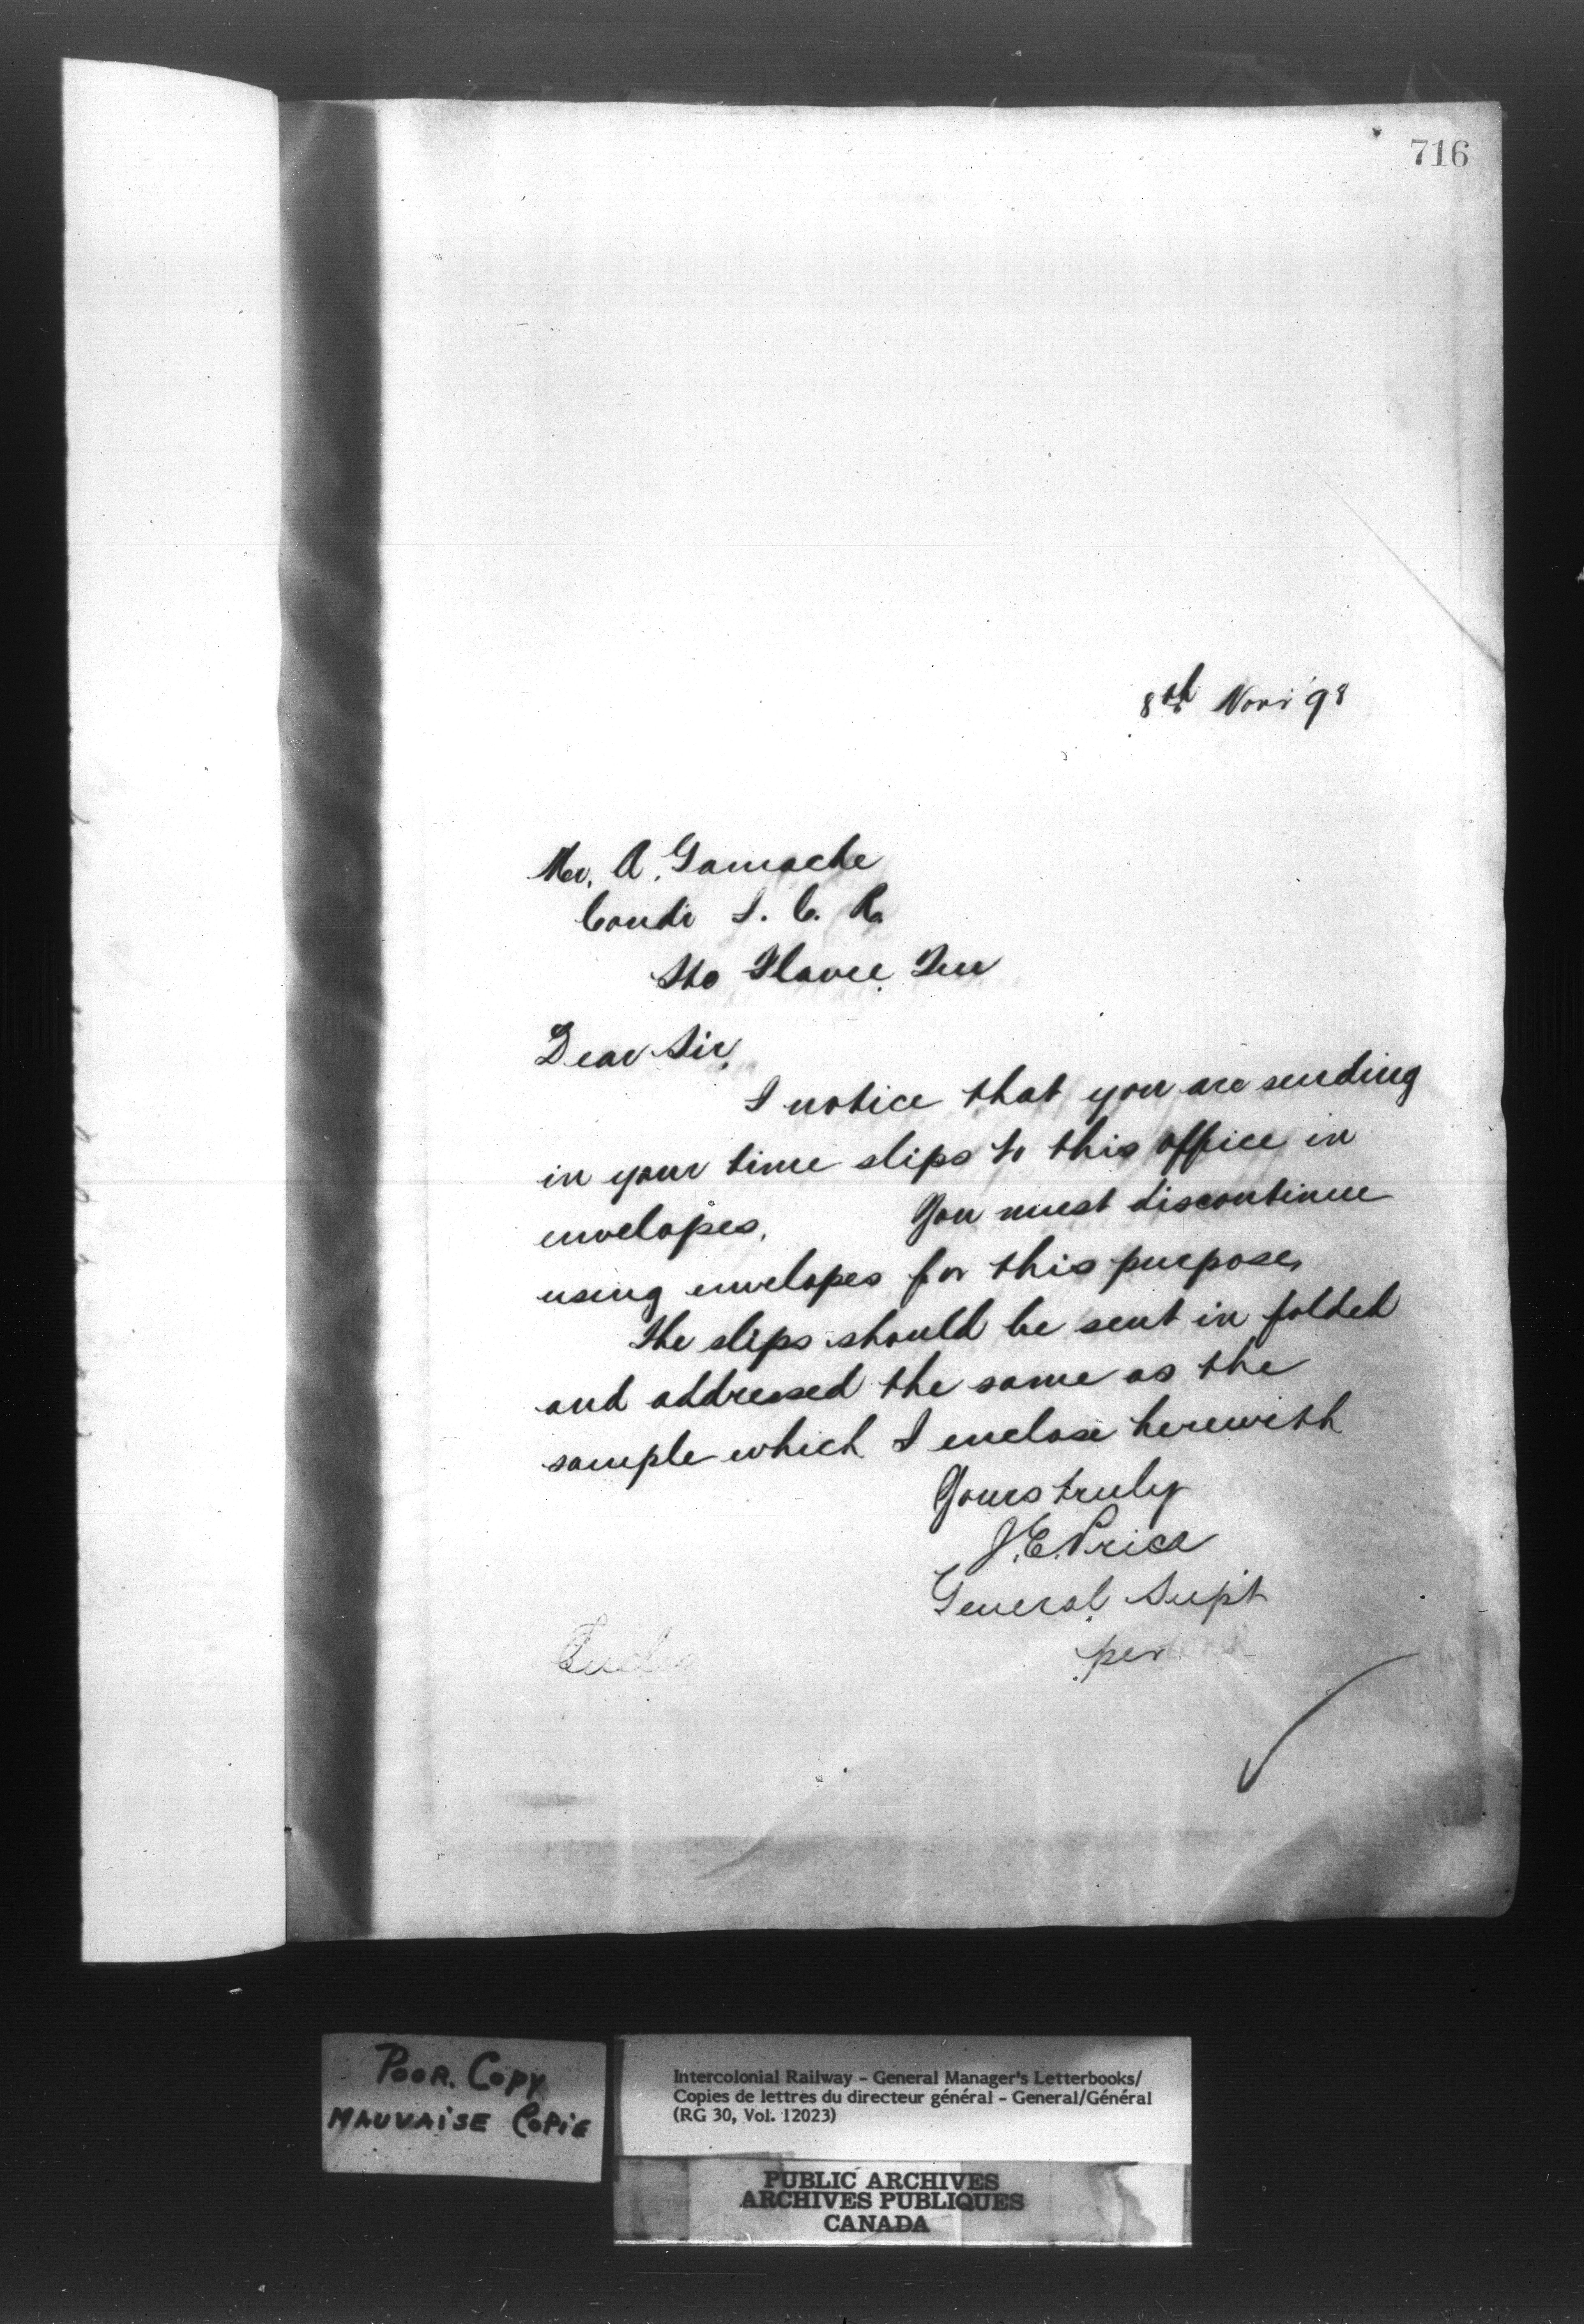 716
8th Novr '98
Mr. A. Gamache
Condr I. C. R.
Ste Flavie Jun
Dear Sir,
I notice that you are sending
in your time slips to this office in
envelopes. You must discontinue
using envelopes for this purpose,
The slips should be sent in folded
and addressed the same as the
sample which I enclose herewith
Yours truly
J. E. Price
General Supt
per
Encl.
POOR. COPY
MAUVAISE COPIE
Intercolonial Railway - General Manager's Letterbooks/
Copies de lettres du directeur général - General/Général
(RG 30, Vol. 12023)
PUBLIC ARCHIVES
ARCHIVES PUBLIQUES
CANADA